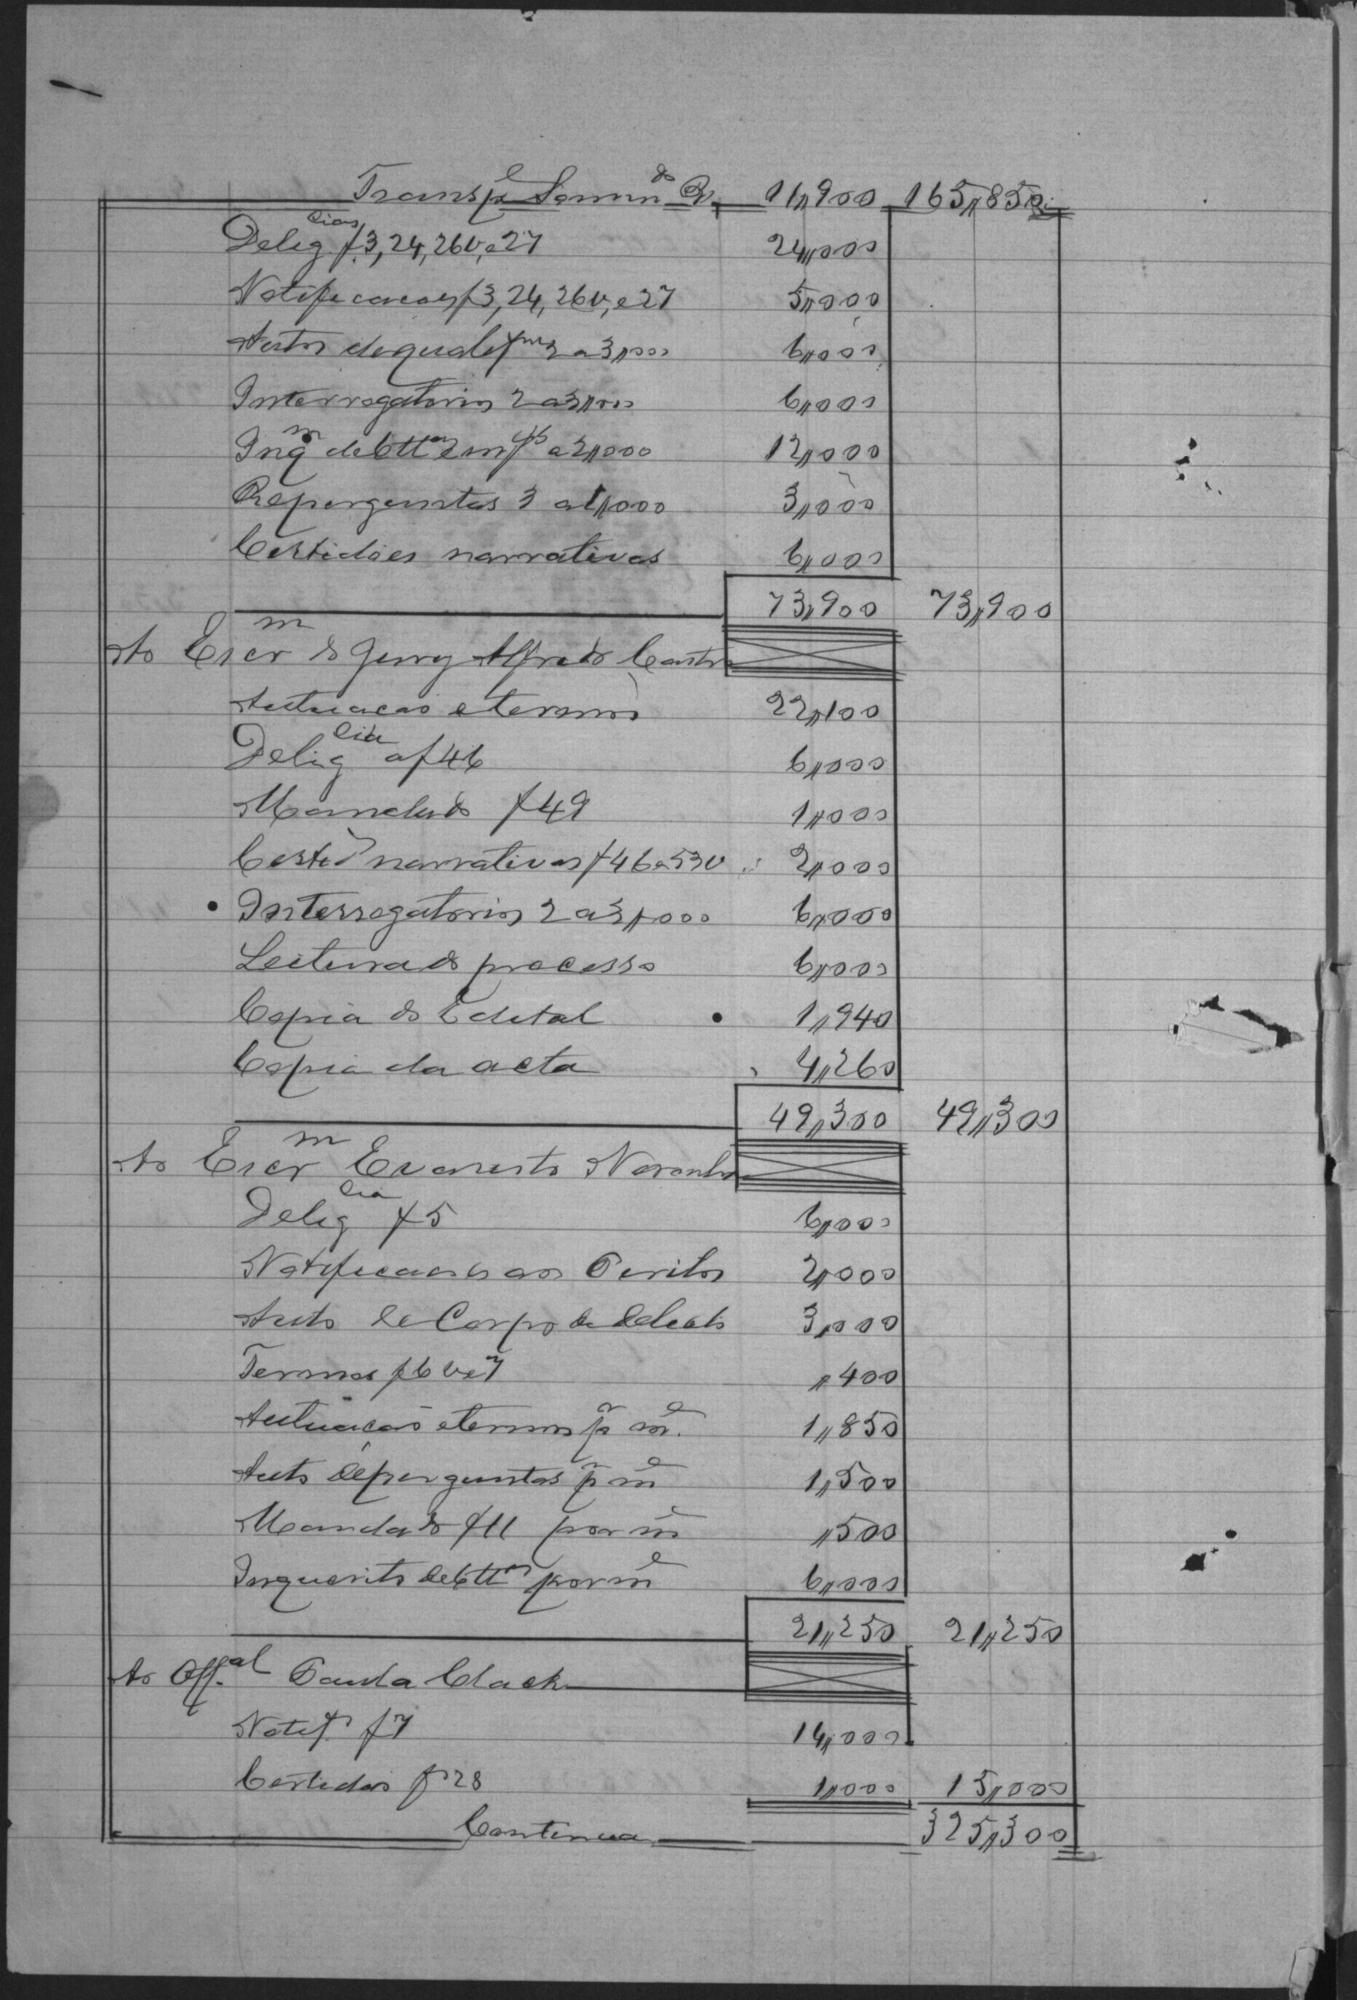 Transp.e Somm.do Rs. 11,,900 165,,850
Delig.cias f.3, 24, 26v, e 27 24,,000
Notificacoes f 3, 24, 26v, e 27 5,,000
Autos de qualif 2 a 3,,000 6,,000
Interrogatorios 2 a 3,,000 6,,000
Inq.m de 6 tt.as a 2,,000 12,,000
Reperguntas 3 a 1,,000 3,,000
Certidões narrativas 6,,000
73,,900 73,,900
Ao Escr.m do Jury Alfredo Castro
Autuacao e termos 22,,100
Delig.cia a f 46 6,,000
Mandado f 49 1,,000
Certid narrativas f 46 e 53v 2,,000
Interrogatorios 2 a 3,,000 6,,000
Leitura do processo 6,,000
Copia do Edital 1,,940
Copia da acta 4,,260
49,,300 49,,300
Ao Escr.m Evaristo Noronha
Delig.cia f 5 6,,000
Notificacoes aos Peritos 2,,000
Auto de Corpo de delicto 3,,000
Termos f 6 v e 7 ,,400
Autuacao e termos p.r m.e 1,,850
Auto de perguntas p.r m.e 1,,500
Mandado f 11 por m.e ,,500
Inquerito de 6 tt.as por m.e 6,,000
21,,250 21,,250
Ao Off.al Paula Clack
Notif. f 7 14,,000
Certidão f 28 1,,000 15,,000
Continua 325,,300